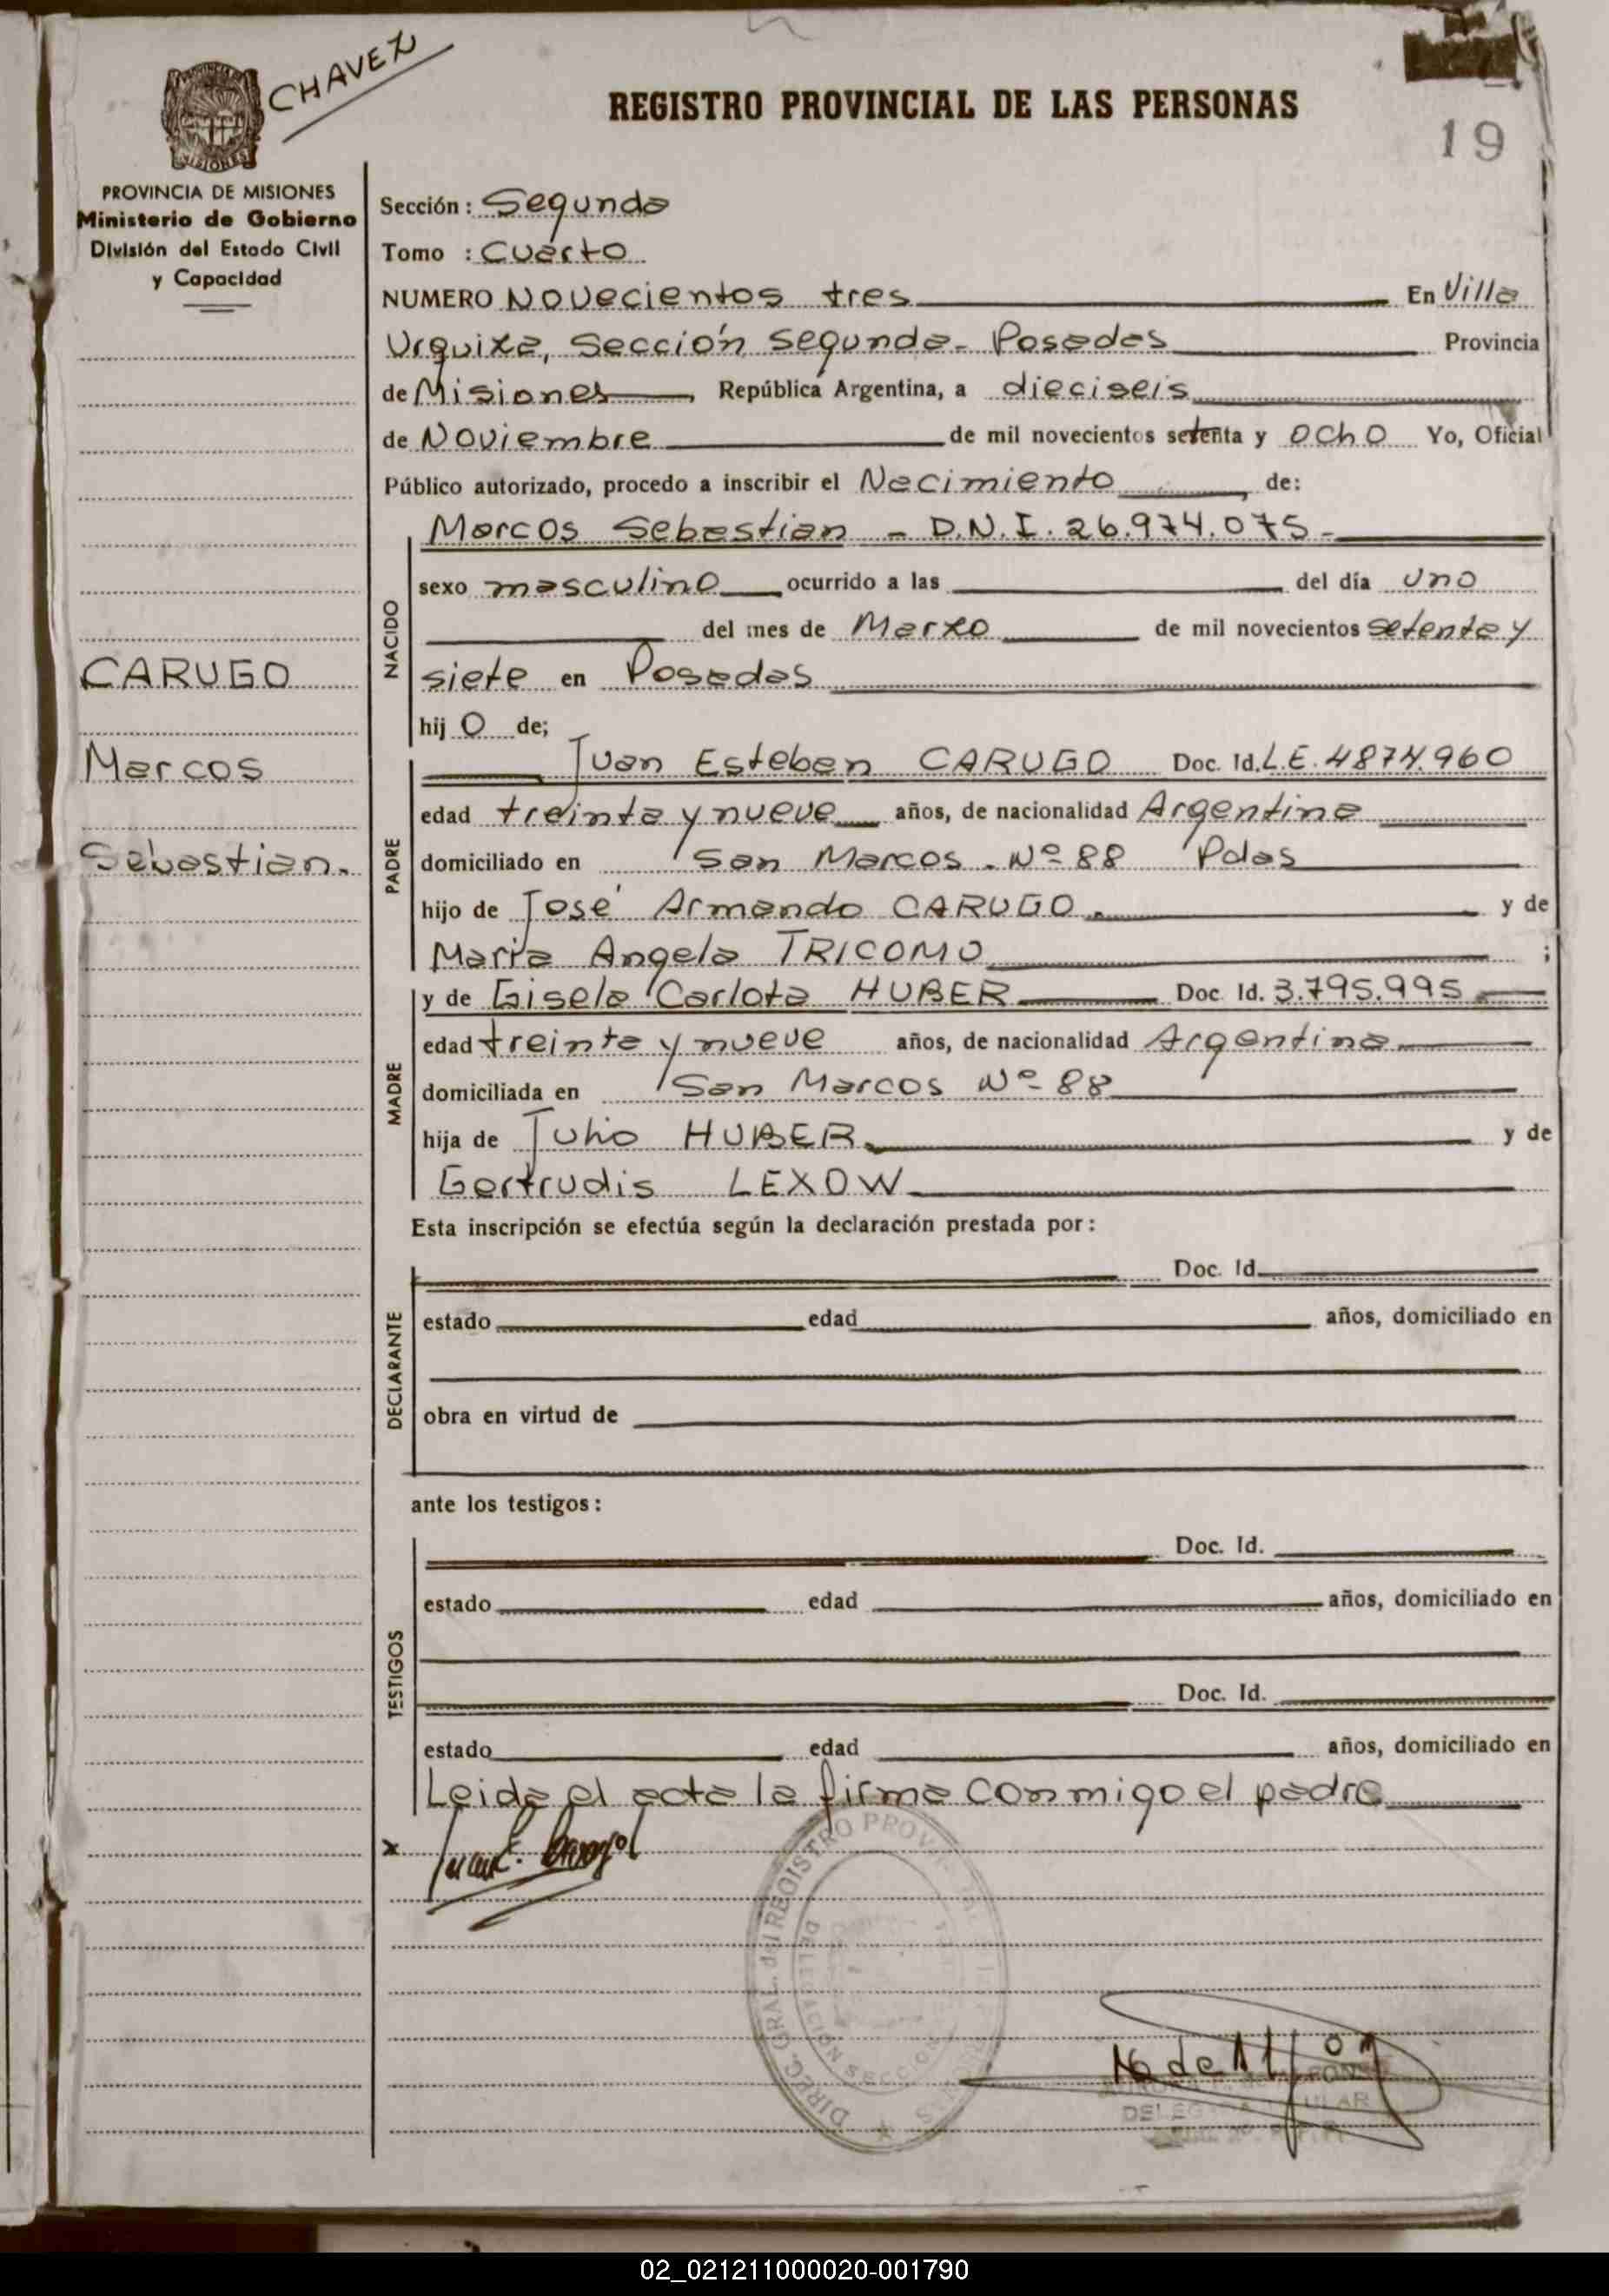 CHAVEZ
REGISTRO PROVINCIAL DE LAS PERSONAS
19
MISIONES
PROVINCIA DE MISIONES
Ministerio de Gobierno
División del Estado Civil
y Capacidad
CARUGO
Marcos
Sebastian.
Sección: Segunda
Tomo : Cuarto
NUMERO Novecientos tres En Villa
Urquiza, Sección segunda - Posadas Provincia
de Misiones, República Argentina, a dieciseis
de Noviembre de mil novecientos setenta y ocho Yo, Oficial
Público autorizado, procedo a inscribir el Nacimiento, de:
NACIDO
Marcos Sebastian - D.N.I. 26.974.075 -
sexo masculino ocurrido a las del día uno
del mes de Marzo de mil novecientos setenta y
siete en Posadas
hij o de;
PADRE
Juan Esteban CARUGO Doc. Id. L.E. 4874.960
edad treinta y nueve años, de nacionalidad Argentina
domiciliado en San Marcos. Nº 88 Pdas
hijo de José Armando CARUGO. y de
Maria Angela TRICOMO ;
MADRE
y de Gisela Carlota HUBER Doc. Id. 3.795.995
edad treinta y nueve años, de nacionalidad Argentina
domiciliada en San Marcos Nº 88
hija de Julio HUBER. y de
Gertrudis LEXOW
Esta inscripción se efectúa según la declaración prestada por:
DECLARANTE
Doc. Id.
estado edad años, domiciliado en
obra en virtud de
ante los testigos:
TESTIGOS
Doc. Id.
estado edad años, domiciliado en
Doc. Id.
estado edad años, domiciliado en
Leida el acta la firma conmigo el padre
x
DIREC. GRAL. del REGISTRO PROV
SECCION
N de Alfon
02_021211000020-001790